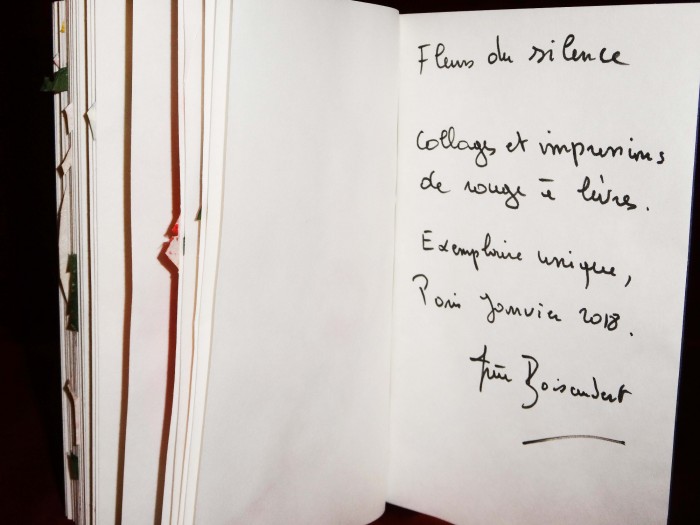 Fleurs du silence
Collages et impressions
de rouge à lèvres.
Exemplaire unique,
Paris Janvier 2018.